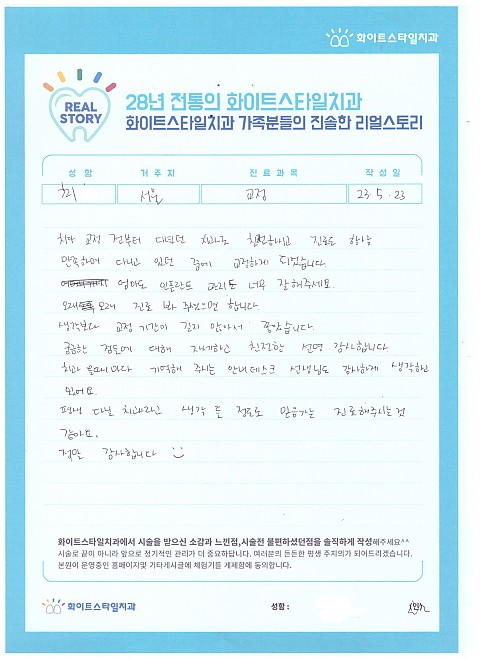 화이트스타일치과
REAL
STORY
28년 전통의 화이트스타일치과
화이트스타일치과 가족분들의 진솔한 리얼스토리
성 함 거 주 지 진 료 과 목 작 성 일
최 서울 교정 23. 5. 23
치아 교정 전부터 다녔던 치과로 친절하시고 진료도 항상
만족하며 다니고 있던 중에 교정하게 되었습니다.
엄마도 임플란트 관리도 너무 잘해주세요.
오래 오래 진료 봐 주셨으면 합니다.
생각보다 교정 기간이 길지 않아서 좋았습니다.
궁금한 점도에 대해 자세하고 친절한 설명 감사합니다
치과 올때마다 기억해 주시는 안내데스크 선생님도 감사하게 생각하고
있어요.
평생 다닐 치과라고 생각 든 정도로 믿음가는 진료해주시는것
같아요.
정말 감사합니다
화이트스타일치과에서 시술을 받으신 소감과 느낀점,시술전 불편하셨던점을 솔직하게 작성해주세요^^
시술로 끝이 아니라 앞으로 정기적인 관리가 더 중요하답니다. 여러분의 든든한 평생 주치의가 되어드리겠습니다.
본원이 운영중인 홈페이지및 기타게시글에 체험기를 게제함에 동의합니다.
화이트스타일치과 성함 :